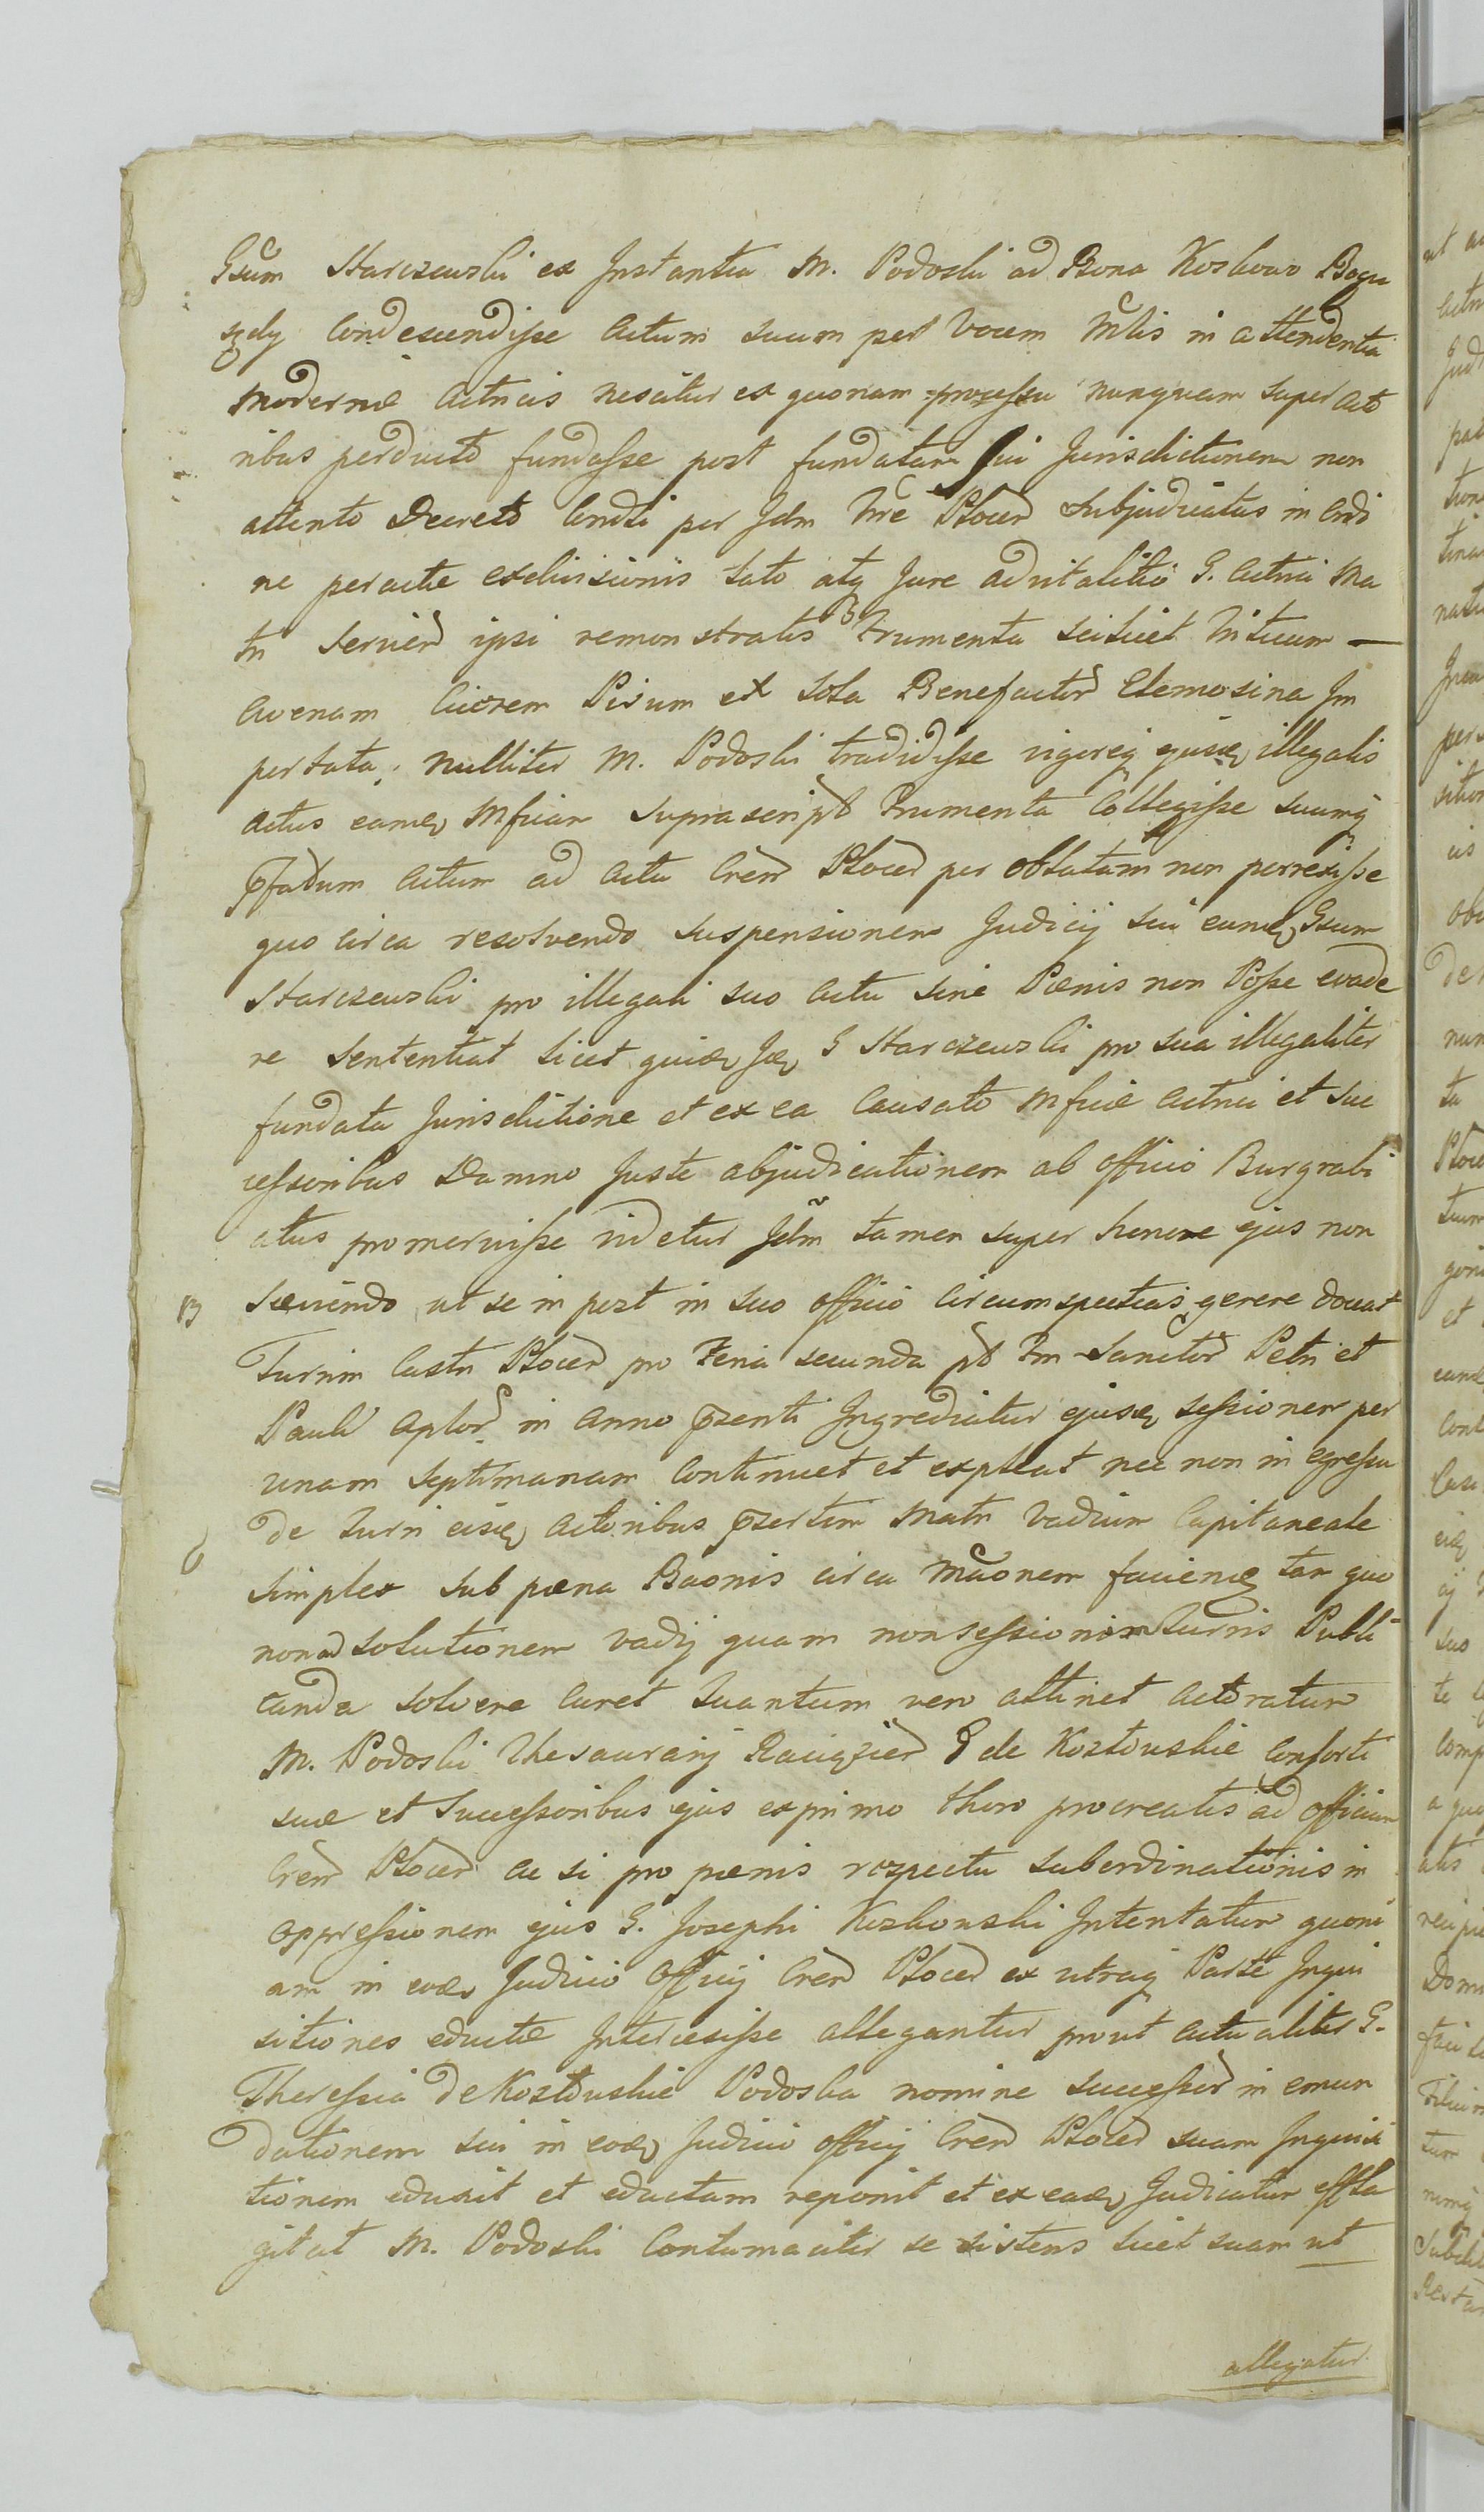 Gsum Starczewski ex Instantia M. Podoski ad Bona Kozłowo Bogu
szely Condescendisse Actum suum per Vocem Mtlis in attendentia
modernæ Actricis nescitur ex quonam processu nunquam super Acto
ribus perducto fundasse post fundatam sui Jurisdictionem non
attento Decreto Condti per Jdm Tre Płocen Subjudicatus in Ordi
ne peractæ exdivisionis sato atq Jure advitalitio G. Actrici Ma
tri Servien ipsi remonstratis Frumenta scilicet Triticum —
Avenam Cicerem Pisum ex sola Benefactor Elemosina Im
pertata, nulliter M. Podoski tradidisse vigoreq ejusd illegalis
actus eamd Mficam suprascript Frumenta Collegisse suumq
pfatum Actum ad Acta Cren Płocen per oblatam non porrexisse
quo circa resolvendo suspensionem Judicij sui eund Gsum
Starczewski pro illegali suo Actu sine Pœnis non Posse evade
re sententiat licet quid Jd G Starczewski pro sua illegaliter
fundata Jurisdictione et ex ea Causato Mficæ Actrici et Suc
cessoribus Damno Juste abjudicationem ab officio Burgrabi
atus promeruisse videtur Jdm tamen super honore ejus non
B Sæviendo ut se in post in suo officio Circumspectius gerere doceat
Turrim Castri Płocen pro Feria secunda pt Fm Sanctor Petri et
Pauli Aplor in Anno pzenti Ingrediatur ejusd sessionem per
unam Septimanam Continuet et expleat nec non in egressu
de Turri eisd Actoribus pzertim Matri Vadium Capitaneale
simplex sub pœna Baonis circa Mtaonem faciend tam quo
non ad solutionem vadij quam non sessionem Turris Publi
canda solvere Curet Quantum vero attinet Actoratum
M. Podoski Thesaurarij Raciążien G de Kozłowskie Consorti
suæ et Successoribus ejus ex primo thoro procreatis ad officium
Cren Płocen ac si pro pœnis respectu subordinationis in
oppressionem ejus G. Josephi Kozłowski Intentatum quoni
am in eod Judicio Officij Cren Płocen ex utraq Parte Inqui
sitiones eductæ Intercessisse allegantur prout actualiter G.
Theressia de Kozłowskie Podoska nomine successor in emun
dationem sui in eod Judicio officij Cren Płocen suam Inquisi
tionem eduxit et eductam reponit et ex ead Judicatum effla
gitat M. Podoski Contumaciter se sistens licet suam ut
allegatur